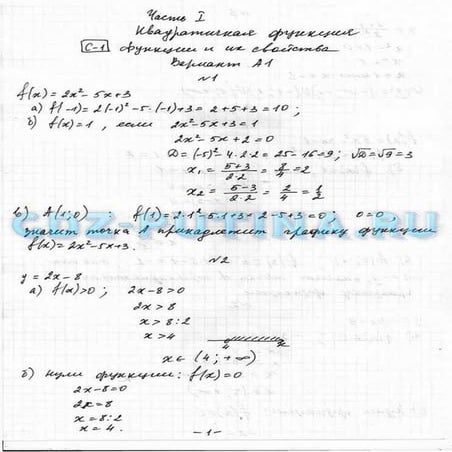 Часть I
Квадратичная функция
С-1 Функции и их свойства
Вариант А1
№1
f(x) = 2x² - 5x + 3
а) f(-1) = 2(-1)² - 5·(-1) + 3 = 2 + 5 + 3 = 10;
б) f(x) = 1, если 2x² - 5x + 3 = 1
2x² - 5x + 2 = 0
D = (-5)² - 4·2·2 = 25 - 16 = 9; √D = √9 = 3
x₁ = (5+3)/(2·2) = 8/4 = 2
x₂ = (5-3)/(2·2) = 2/4 = 1/2
в) A(1; 0) f(1) = 2·1² - 5·1 + 3 = 2 - 5 + 3 = 0; 0 = 0
значит точка A принадлежит графику функции
f(x) = 2x² - 5x + 3.
№2
y = 2x - 8
а) f(x) > 0; 2x - 8 > 0
2x > 8
x > 8 : 2
x > 4
4 x
x ∈ (4; +∞)
б) нули функции: f(x) = 0
2x - 8 = 0
2x = 8
x = 8 : 2
x = 4.
- 1 -